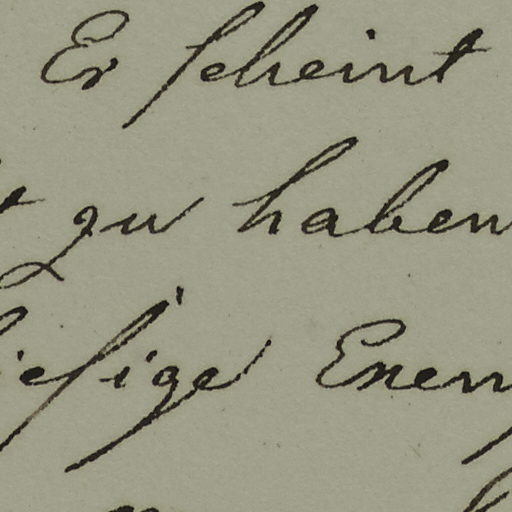 Er scheint
zu haben
riesige Energ